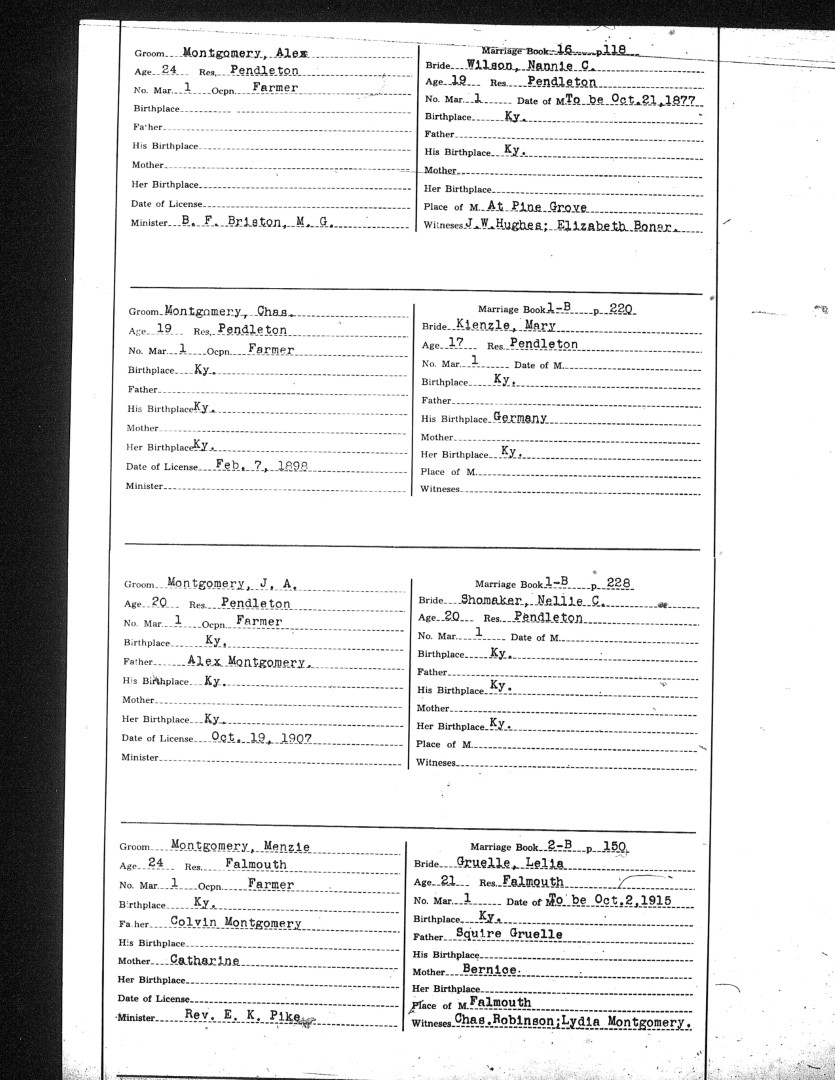 Groom Montgomery, Alex
Age 24 Res. Pendleton
No. Mar. 1 Ocpn. Farmer
Birthplace
Father
His Birthplace
Mother
Her Birthplace
Date of License
Minister B. F. Briston, M. G.
Marriage Book 16 p 118
Bride Wilson, Nannie C.
Age 19 Res. Pendleton
No. Mar. 1 Date of M. To be Oct.21,1877
Birthplace Ky.
Father
His Birthplace Ky.
Mother
Her Birthplace
Place of M. At Pine Grove
Witneses J.W.Hughes; Elizabeth Boner.
Groom Montgomery, Chas.
Age 19 Res. Pendleton
No. Mar. 1 Ocpn. Farmer
Birthplace Ky.
Father
His Birthplace Ky.
Mother
Her Birthplace Ky.
Date of License Feb. 7, 1898
Minister
Marriage Book 1-B p 220
Bride Kienzle, Mary
Age 17 Res. Pendleton
No. Mar. 1 Date of M.
Birthplace Ky.
Father
His Birthplace Germany
Mother
Her Birthplace Ky.
Place of M.
Witneses
Groom Montgomery, J. A.
Age 20 Res. Pendleton
No. Mar. 1 Ocpn. Farmer
Birthplace Ky.
Father Alex Montgomery.
His Birthplace Ky.
Mother
Her Birthplace Ky.
Date of License Oct. 19, 1907
Minister
Marriage Book 1-B p 228
Bride Shomaker, Nellie C.
Age 20 Res. Pendleton
No. Mar. 1 Date of M.
Birthplace Ky.
Father
His Birthplace Ky.
Mother
Her Birthplace Ky.
Place of M.
Witneses
Groom Montgomery, Menzie
Age 24 Res. Falmouth
No. Mar. 1 Ocpn. Farmer
Birthplace Ky.
Father Colvin Montgomery
His Birthplace
Mother Catharine
Her Birthplace
Date of License
Minister Rev. E. K. Pike
Marriage Book 2-B p 150
Bride Gruelle, Lelia
Age 21 Res. Falmouth
No. Mar. 1 Date of M. To be Oct.2,1915
Birthplace Ky.
Father Squire Gruelle
His Birthplace
Mother Bernice.
Her Birthplace
Place of M. Falmouth
Witneses Chas.Robinson;Lydia Montgomery.